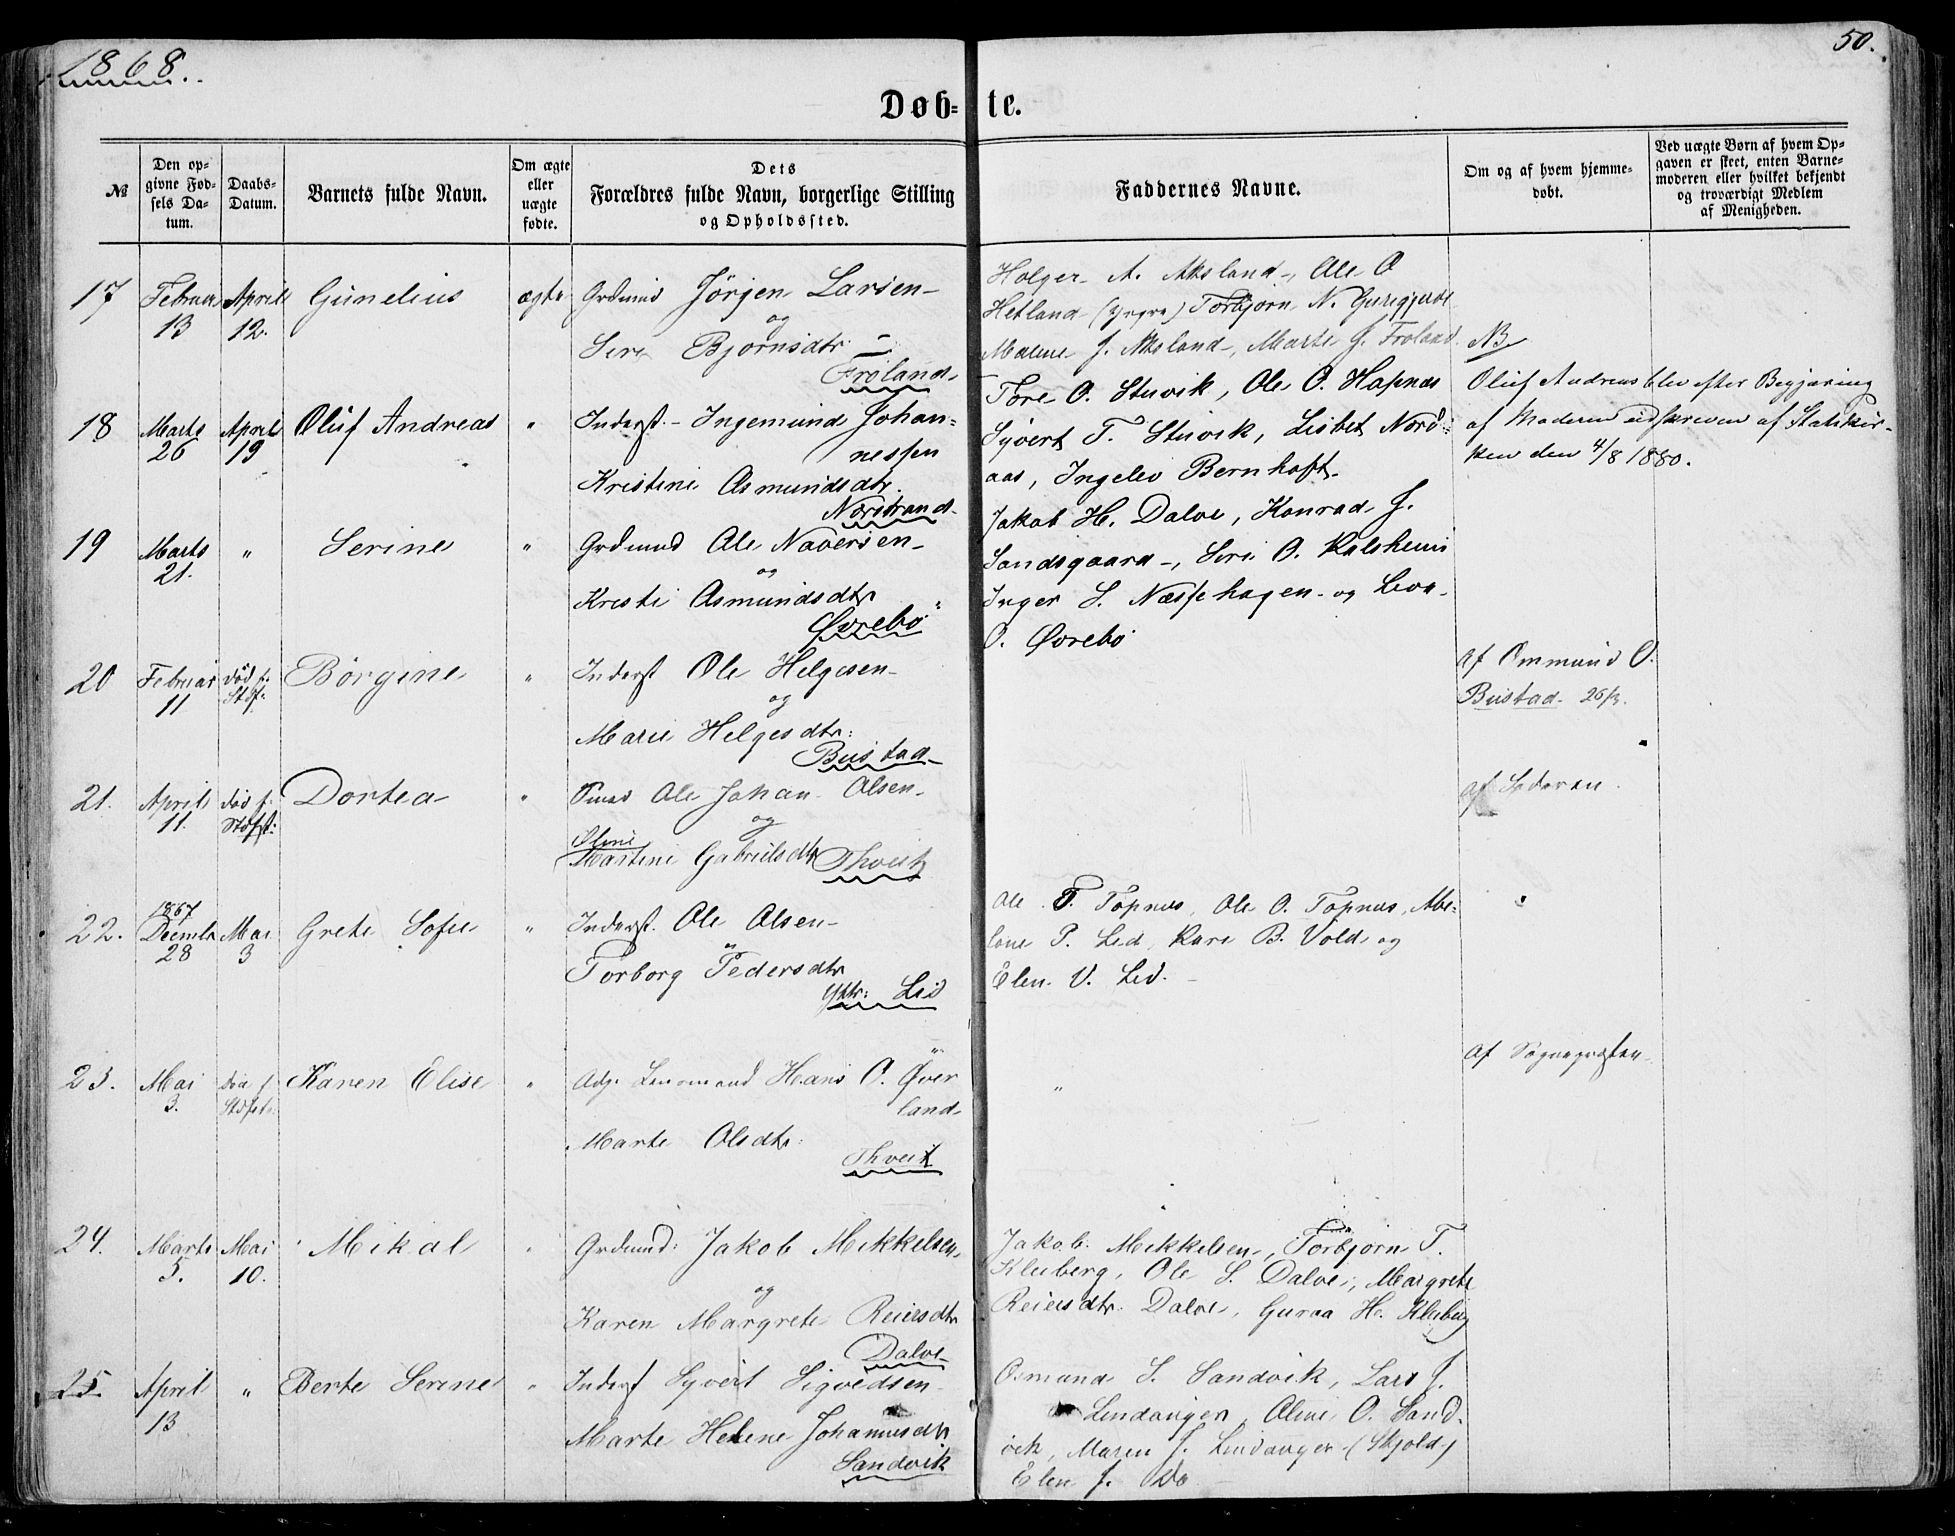 1868.
50.
Døb-te.
№
Den op-
givne Fød-
sels Da-
tum.
Daabs-
Datum.
Barnets fulde Navn.
Om ægte
eller
uægte
fødte.
Dets
Forældres fulde Navn, borgerlige Stilling
og Opholdssted.
Faddernes Navne.
Om og af hvem hjemme-
døbt.
Ved uægte Børn af hvem Op-
gaven er skeet, enten Barne-
moderen eller hvilket bekjendt
og troværdigt Medlem
af Menigheden.
17 Februar 13 April 12. Gunelius ægte Grdmnd Jörgen Larsen
og
Siri Björnsdtr.
Fröland
Holger A. Aksland, Ole O
Hetland Torbjörn N.
Malene J. Aksland, Marte J. Fröland.
18 Marts 26 April 19 Oluf Andreas " Inderst. Ingemund Johan-
nessen
Kristine Asmundsdtr.
Norstrand
Tore O. Stuvik, Ole O. Hapnes
Syvert T. Stuvik, Lisbet Nord-
aas, Ingelev Bernhoft.
NB
Oluf Andreas blev efter Begjæring
af Moderen udskreven af Statskir-
ken den 4/8 1880.
19 Marts 21. " Serine " Grdmnd Ole
og
Kristi Asmundsdtr
Øvrebö
Jakob H. Dalve, Konrad J.
Sandsgaard, Siri O. Kalsheim
Inger S. Næssehagen og Lova
O. Øvrebö
20 Februar 11 död f. Stdf. Börgine " Inderst Ole Helgesen
og
Marie Helgesdtr:
Bustad
af Ommund O.
Bustad.
21. April 11. död f. Stdfst: Dortea " Ole Johan Olsen
og
Oline
Martine Gabrielsdtr Thveit
af Faderen.
22. 1867 Decembr 28 Mai 3 Grete Sofie " Inderst. Ole Olsen
Torborg Pedersdtr
Lid
Ole T. Topnes, Ole O. Topnes, Abe-
lone P. Lid, Kari B. Vold og
Elen V. Lid.
"
23. Mai 3. död f Stdfst. Karen Elise " Lensmand Hans O. Över
land
Marte Olsdtr:
Thveit
"
af Sognepræsten
24. Marts 5. Mai 10. Mikal " Grdmnd: Jakob Mikkelsen
og
Karen Margrete Reiersdtr
Dalve
Jakob Mikkelsen, Torbjörn T.
Kleiberg, Ole S. Dalve, Margrete
Reiersdtr. Dalve, Guroa H. Kleiberg
25 April 13 " Berte Serine " Inderst Syvert Sigvedsen
Marte Helene Johannesdtr
Sandvik
Osmund S. Sandvik, Lars J.
Lindanger, Oline O. Sand-
vik, Maren J. Lindanger (Skjold)
Elen J. Do